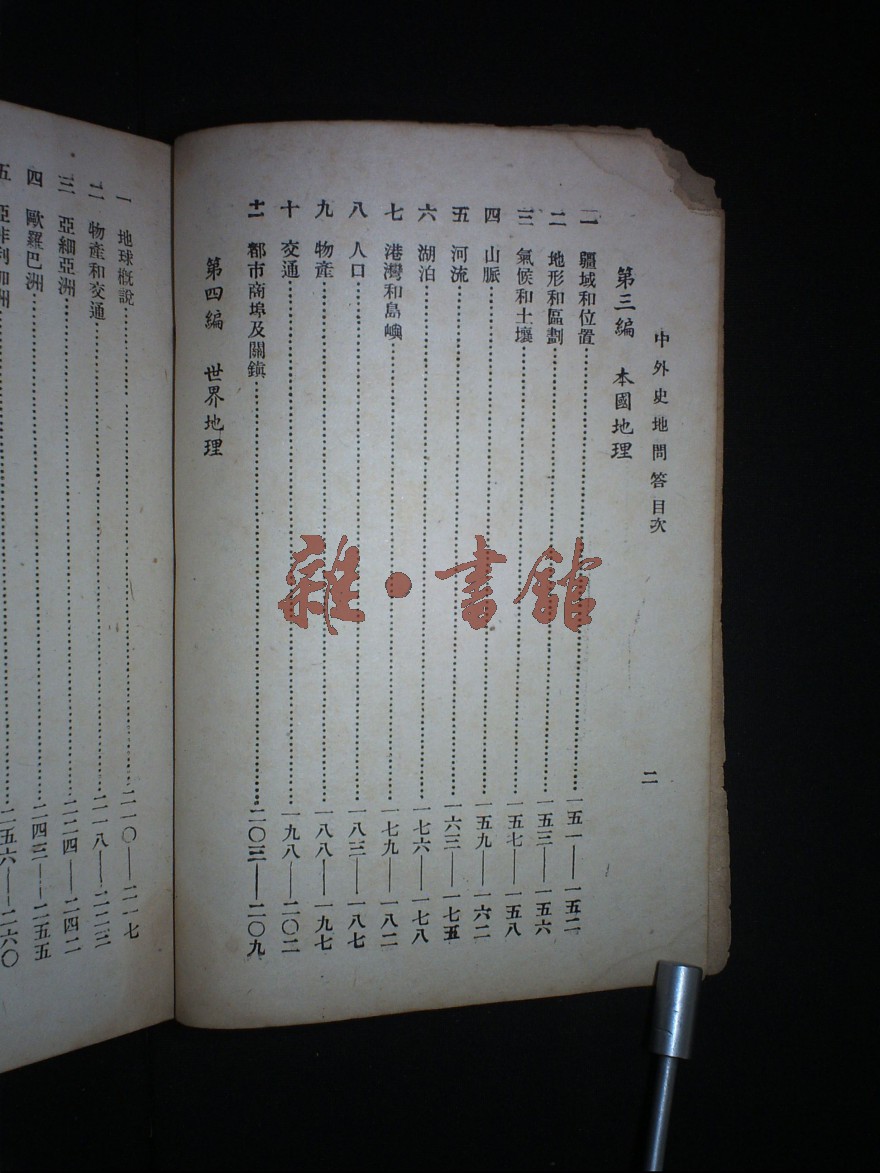 中外史地問答目次
二
第三編 本國地理
一 疆域和位置……一五一——一五二
二 地形和區劃……一五三——一五六
三 氣候和土壤……一五七——一五八
四 山脈……一五九——一六二
五 河流……一六三——一七五
六 湖泊……一七六——一七八
七 港灣和島嶼……一七九——一八二
八 人口……一八三——一八七
九 物產……一八八——一九七
十 交通……一九八——二〇二
十一 都市商埠及關鎮……二〇三——二〇九
第四編 世界地理
一 地球概說……二一〇——二一七
二 物產和交通……二一八——二二三
三 亞細亞洲……二二四——二四二
四 歐羅巴洲……二四三——二五五
五 亞非利加洲……二五六——二六〇
雜·書館